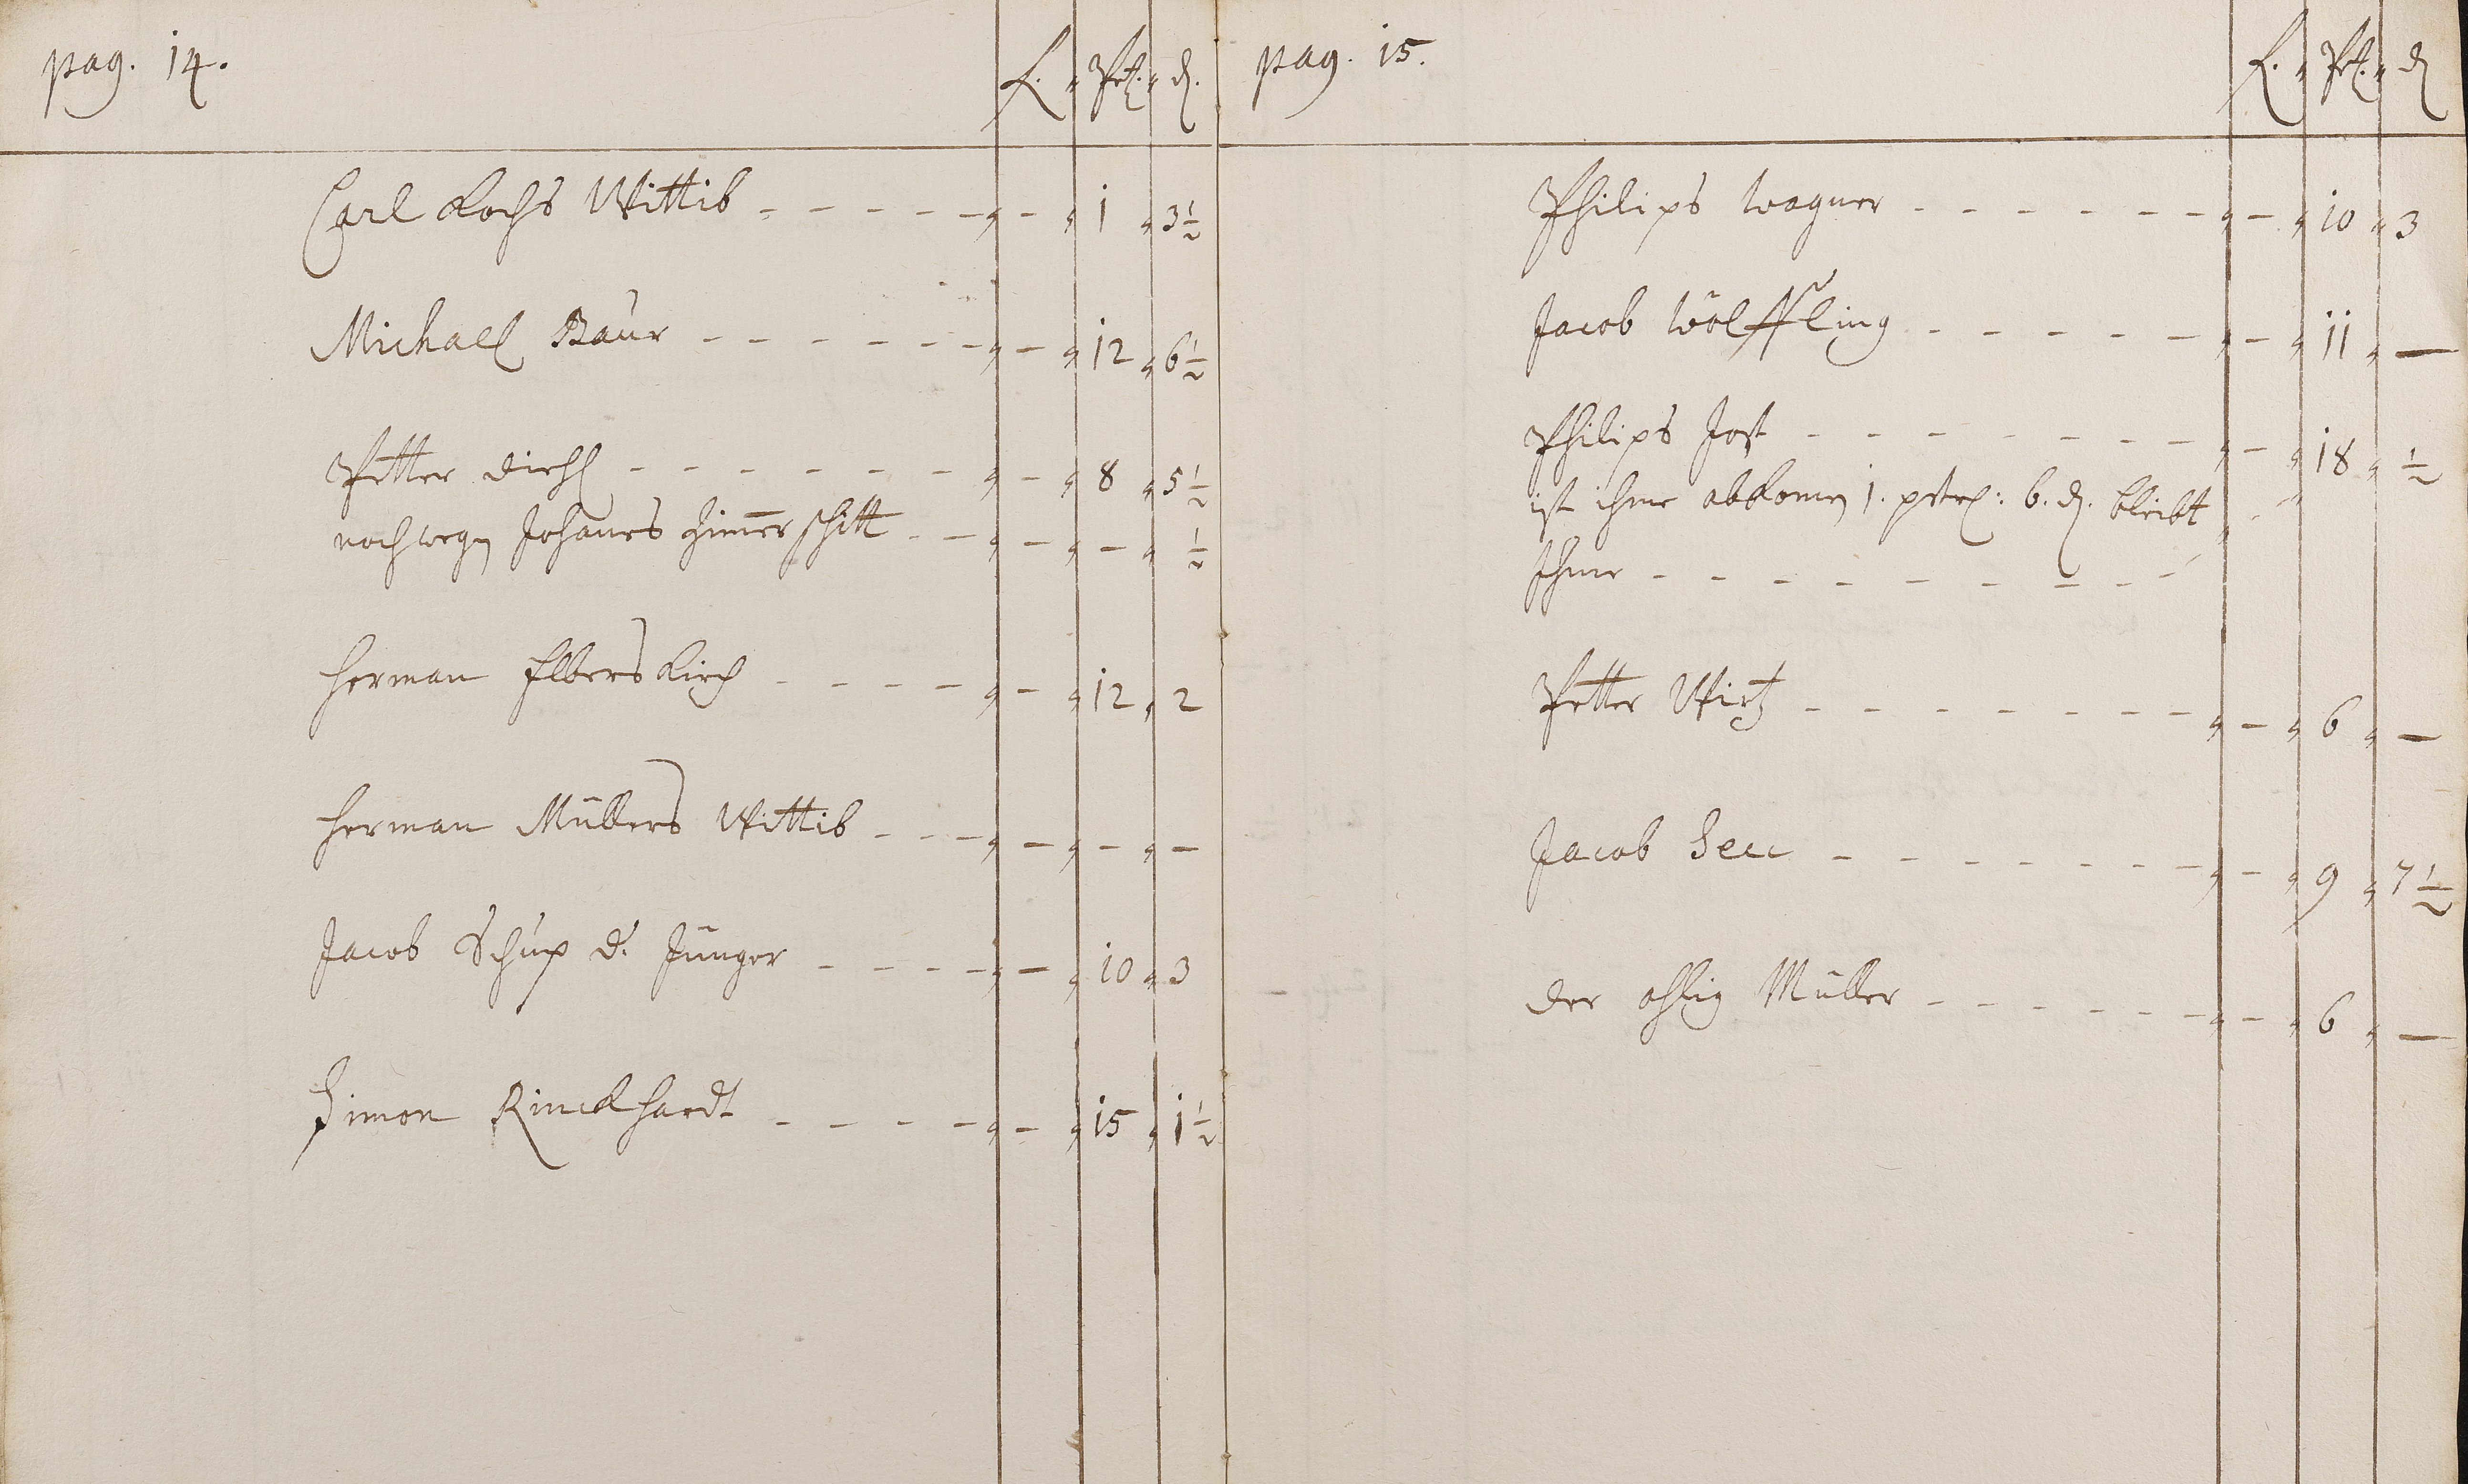 pag. 14.
f. " Ptz. " d.
Carl Kochs Wittib - - - - - " - " 1 " 3 1/2
Michael Baur - - - - - - " - " 12 " 6 1/2
Petter Diehl - - - - - - - " - " 8 " 5 1/2
noch wegen Johanes Zimerschitt - - " - " - " 1/2
Herman Elbers Kirch - - - - " - " 12 " 2
Herman Müllers Wittib - - - " - " - " -
Jacob Schup d. Jünger - - - - " - " 10 " 3
Simon Rinckhardt - - - - " - " 15 " 1 1/2
pag. 15.
f. " Ptz. " d
Philips Wagner - - - - - - " - " 10 " 3
Jacob Wölffling - - - - - " - " 11 " -
Philips Jost - - - - - - - " - " 18 " 1/2
ist ihme abkomen 1. : 6. d. bleibt
Ihme - - - - - - - - -
Petter Wirtz - - - - - - - " - " 6 " -
Jacob - - - - - - - " - " 9 " 7 1/2
Der ohlig Müller - - - - - - " - " 6 " -